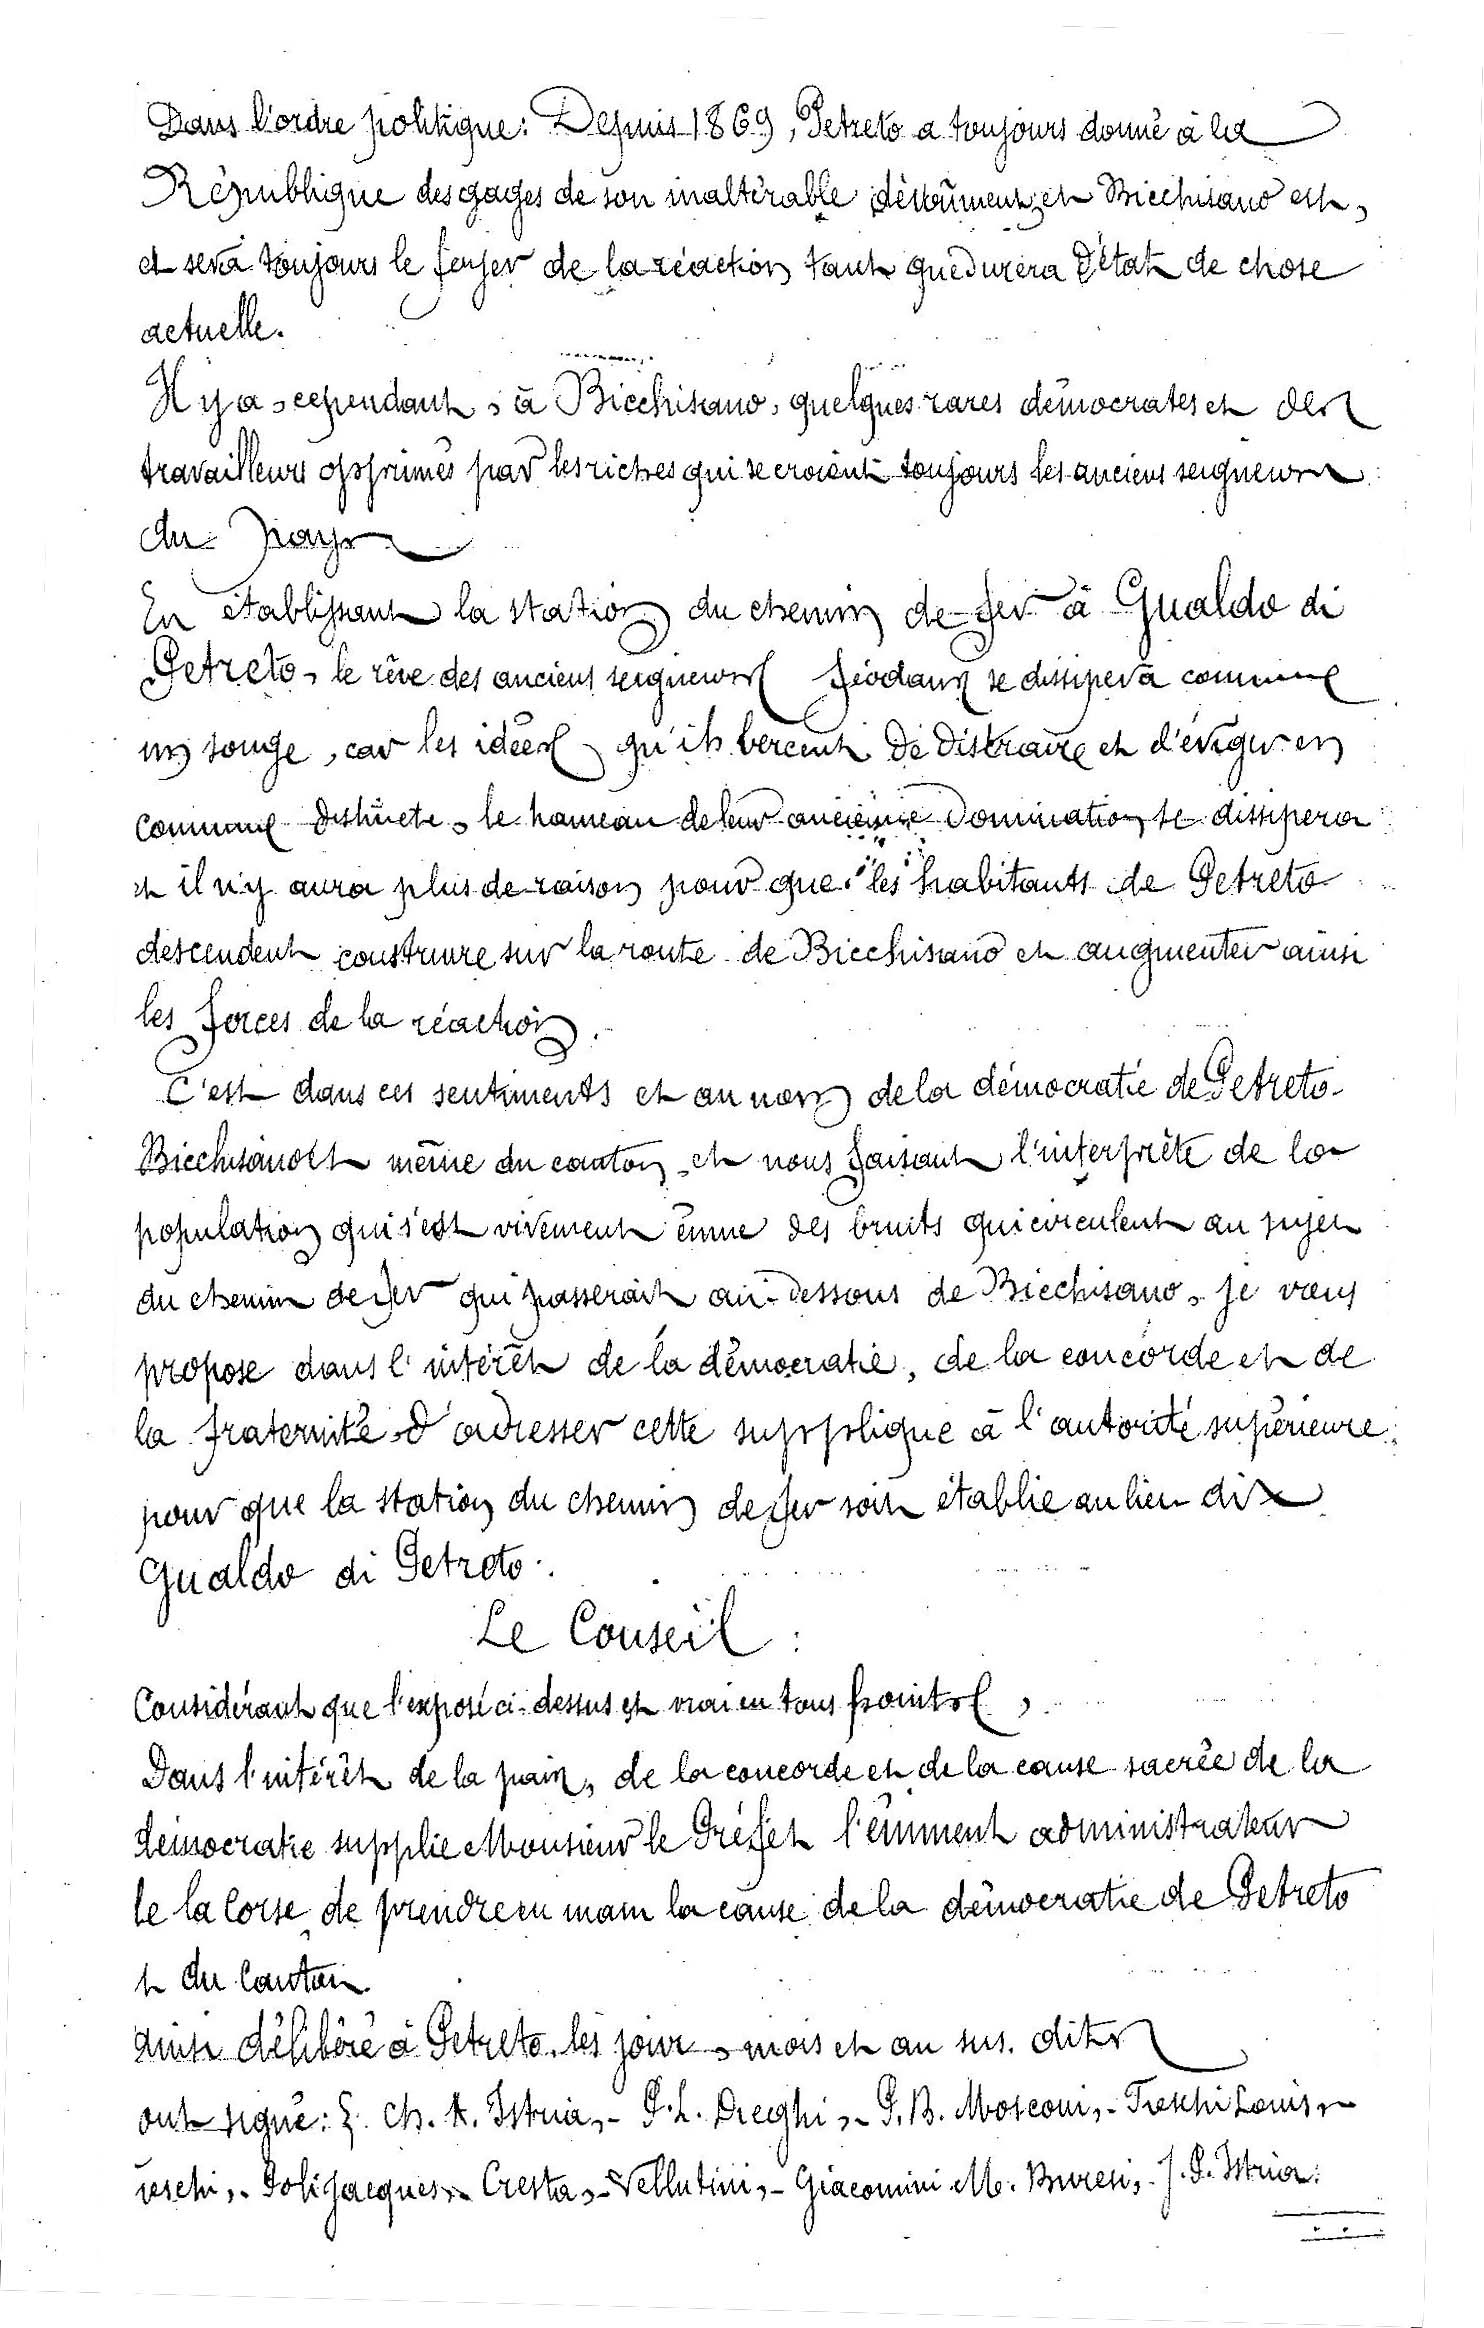 Dans l'ordre politique: Depuis 1869, Petreto a toujours donné à la
République des gages de son inaltérable dévoûment et Bicchisano est,
et sera toujours le foyer de la réaction tant que durera l'état de chose
actuelle.
Il y a, cependant, à Bicchisano, quelques rares démocrates et des
travailleurs opprimés par les riches qui se croient toujours les anciens seigneurs
du pays
En établissant la station du chemin de-fer à Gualdo di
Petreto, le rêve des anciens seigneurs féodaux se dissipera comme
un songe, car les idées qu'ils bercent de distraire et d'ériger en
commune distincte, le hameau de leur ancienne domination se dissipera
et il n'y aura plus de raison pour que les habitants de Petreto
descendent construire sur la route de Bicchisano et augmenter ainsi
les forces de la réaction.
C'est dans ces sentiments et au nom de la démocratie de Petreto-
Bicchisano et même du canton, et nous faisant l'interprète de la
population qui s'est vivement émue des bruits qui circulent au sujet
du chemin de fer qui passerait au-dessous de Bicchisano, je vous
propose dans l'intérêt de la démocratie, de la concorde et de
la fraternité d'adresser cette supplique à l'autorité supérieure
pour que la station du chemin de fer soit établie au lieu dit
Gualdo di Petreto.
Le Conseil:
Considérant que l'exposé ci-dessus est vrai en tous points,
Dans l'intérêt de la paix, de la concorde et de la cause sacrée de la
démocratie supplie Monsieur le Préfet l'éminent administrateur
de la Corse de prendre en main la cause de la démocratie de Petreto
et du Canton.
Ainsi délibéré à Petreto, les jour, mois et an sus.dits
ont signé: Ch. A. Istria,- P.L. Dreghi,- P.B. Mosconi,- Freschi Louis,-
ieschi,- Poli Jacques,- Cresta,- Vellutini,- Giacomini M. Buresi,- J.P. Istria.